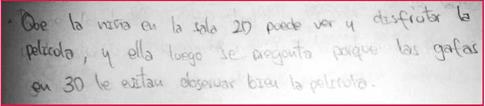 . Que la niña en la sala 2D puede ver y disfrutar la
película, y ella luego se pregunta porque las gafas
en 3D le evitan observar bien la película.